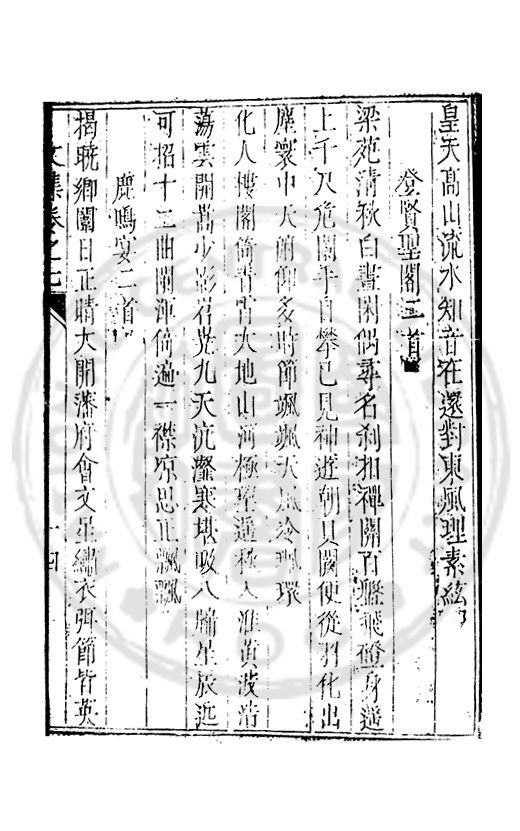 皇天高山流水知音在還對東風理素絃
登賢聖閣二首
梁苑清秋白晝閑偶尋名刹扣禪關百盤飛磴身遥
上千尺危闌手自攀已見神遊朝貝闕便從羽化出
塵寰中天俯仰多時節颯颯天風冷珮環
化人樓閣倚青霄大地山河極望遥秋入淮黄波浩
蕩雲開嵩少影岧嶤九天沆瀣寒堪吸八牖星辰近
可招十二曲闌渾倚遍一襟凉思正飄飄
鹿鳴宴二首
揭曉鄉闈日正晴大開藩府會文星繡衣弭節皆英
文集卷之七
十四